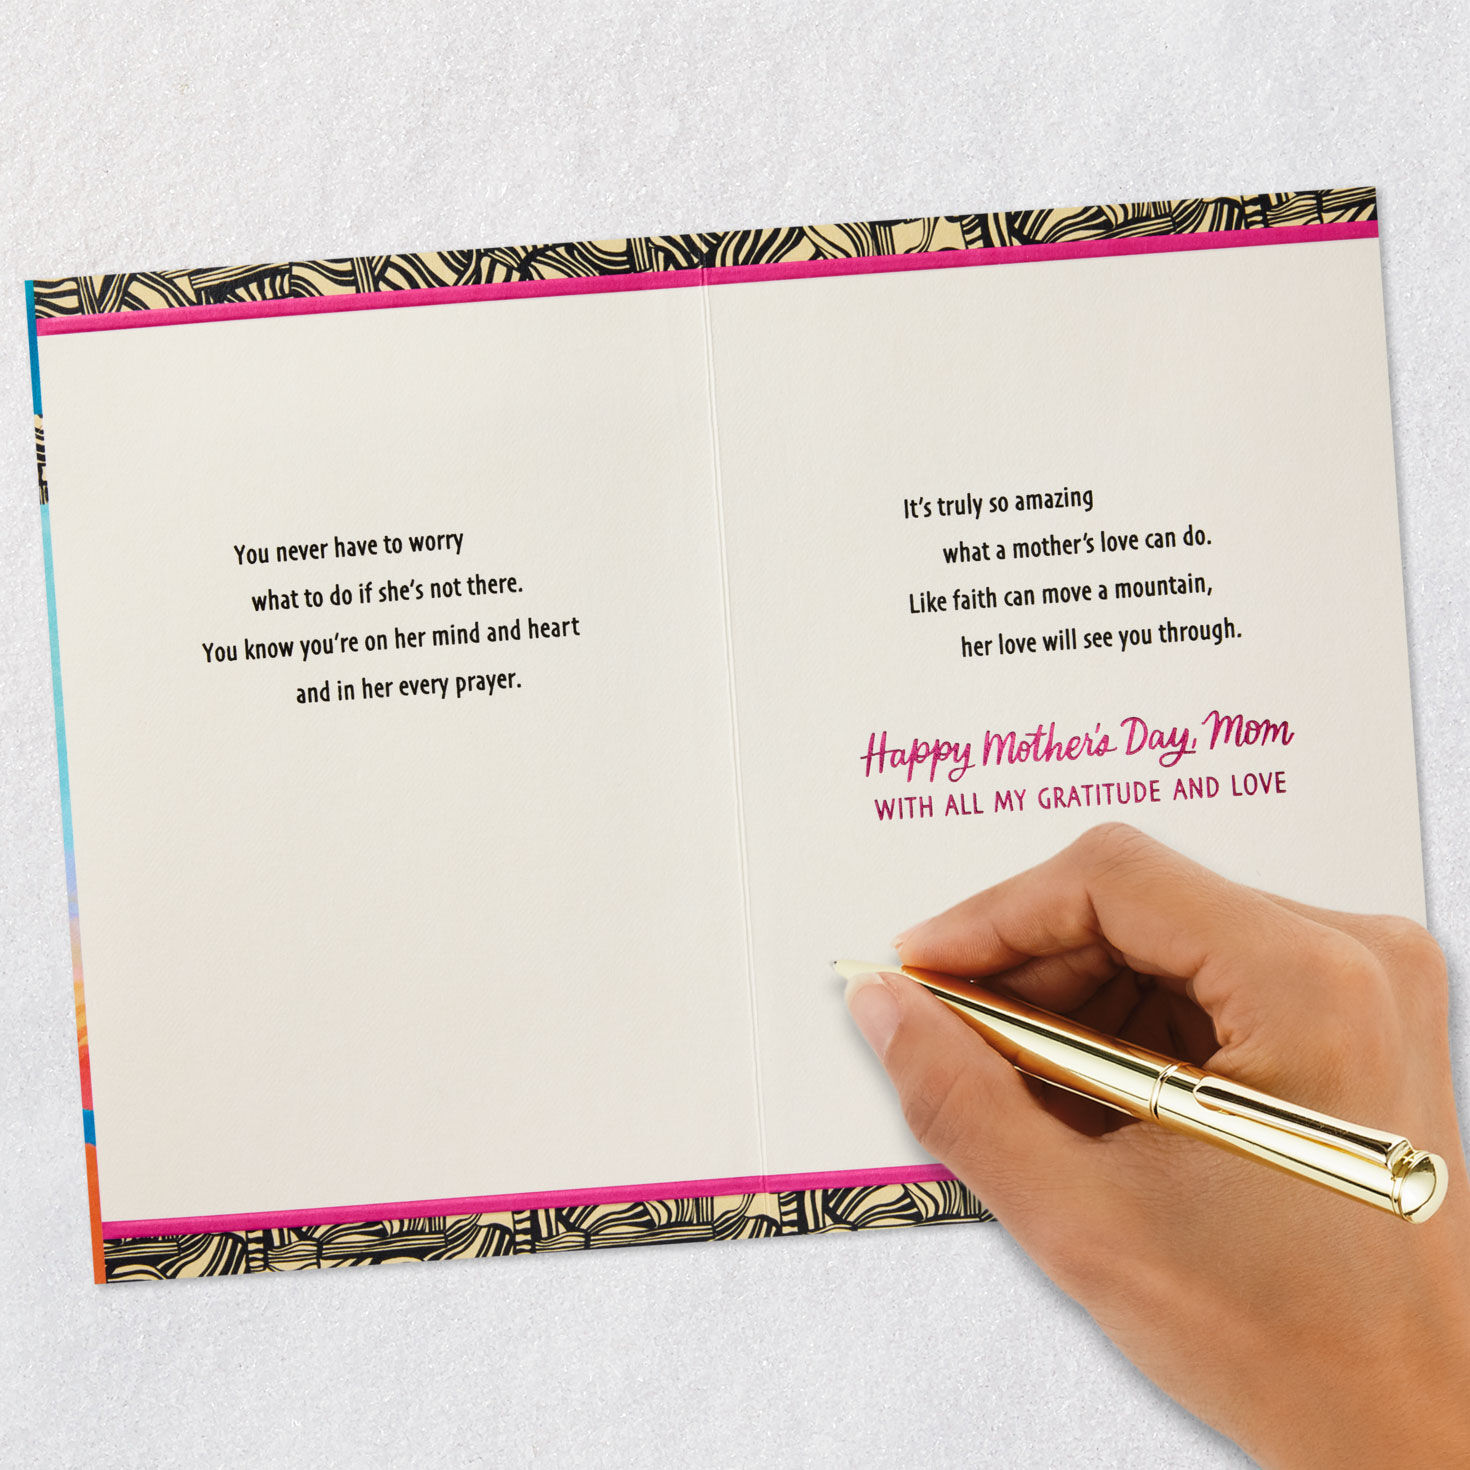 You never have to worry
what to do if she's not there.
You know you're on her mind and heart
and in her every prayer.
It's truly so amazing
what a mother's love can do.
Like faith can move a mountain,
her love will see you through.
Happy Mother's Day, Mom
WITH ALL MY GRATITUDE AND LOVE